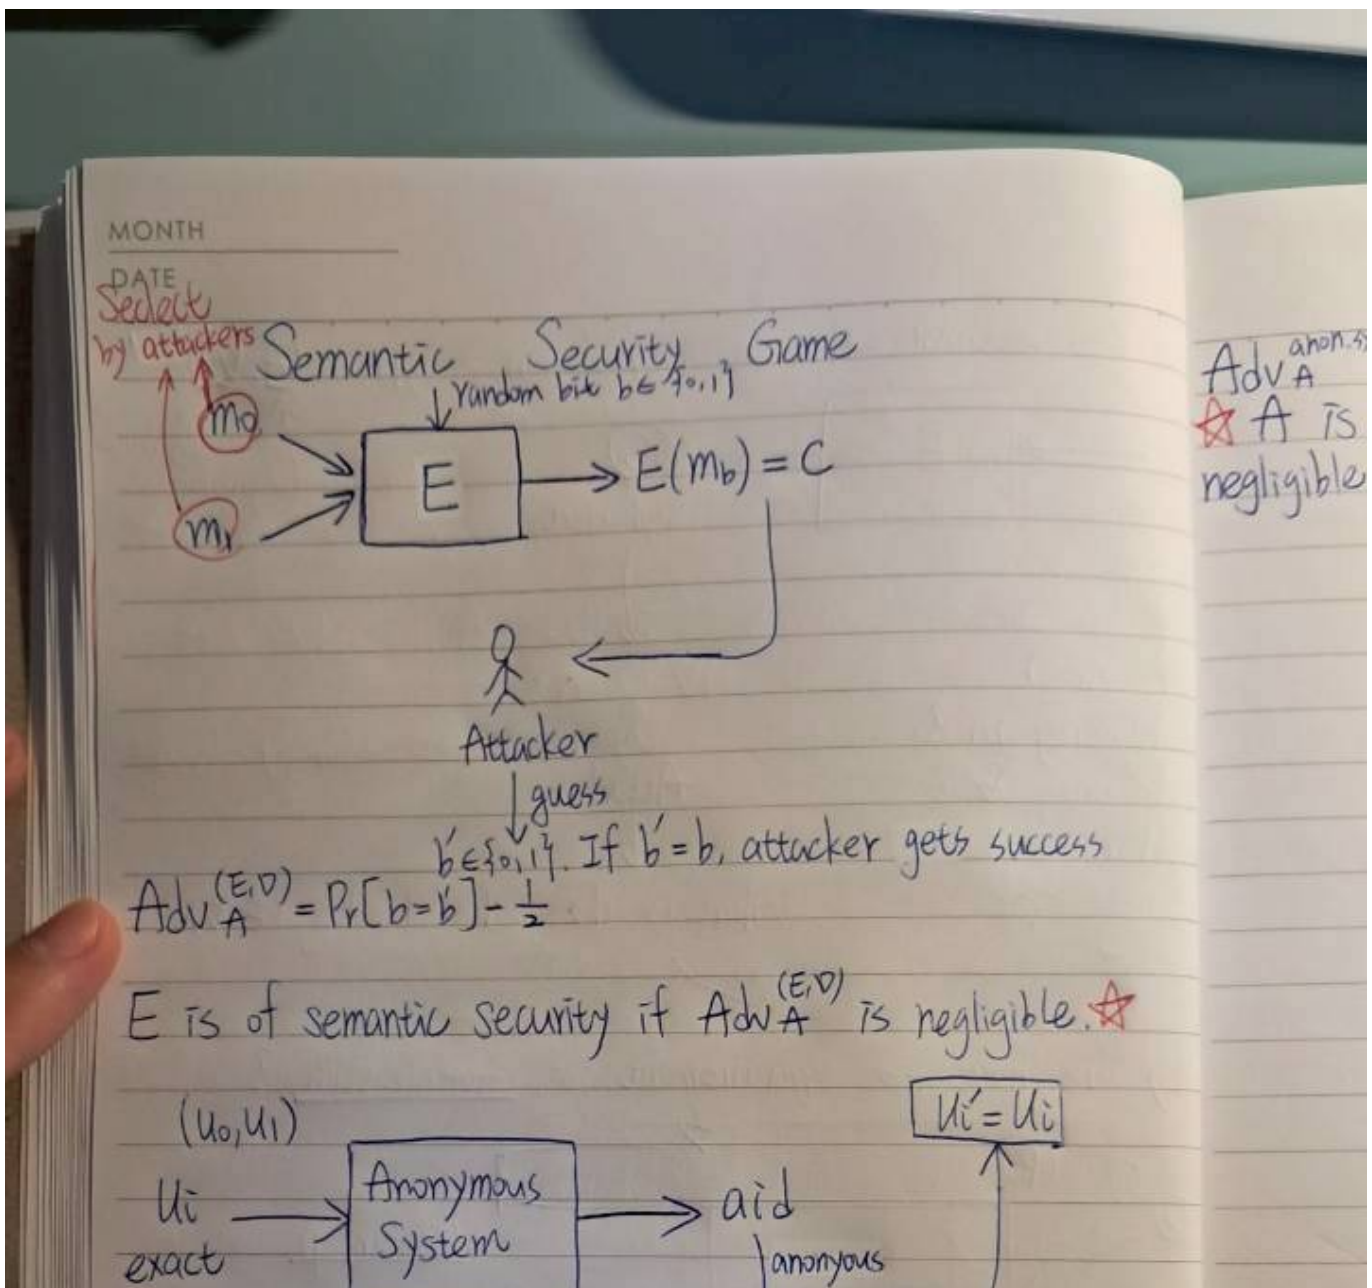 MONTH
DATE
Seclect
by attackers
Semantic Security Game
random bit b∈{0,1}
m₀
E
E(m_b) = C
m₁
Attacker
guess
b′∈{0,1}. If b′=b, attacker gets success
Adv_A^(E,D) = Pr[b=b′] - 1/2
E is of semantic security if Adv_A^(E,D) is negligible.
(u₀,u₁)
ui′=ui
ui
exact
Anonymous
System
aid
anonyous
Adv_A^anon.sy
A is
negligible